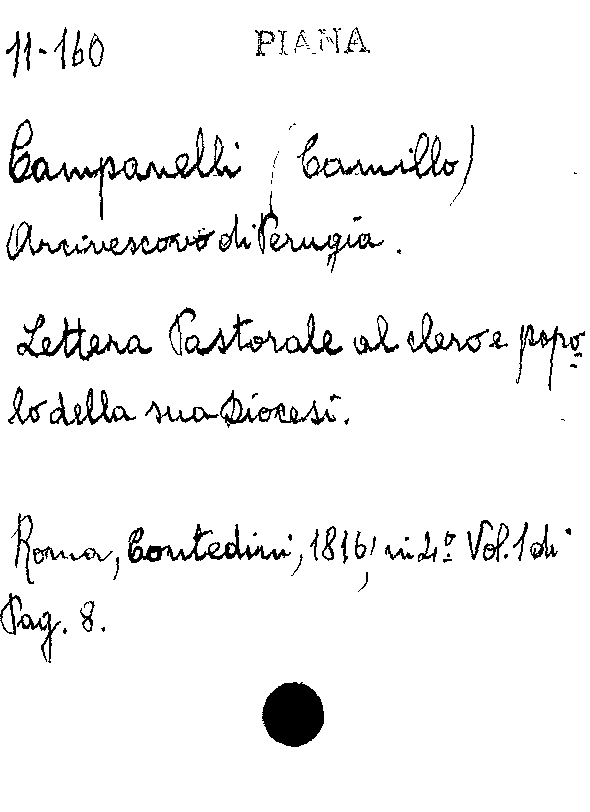 11-160 PIANA
Campanelli (Camillo)
Arcivescovo di Perugia.
Lettera Pastorale al clero e popo=
lo della sua Diocesi.
Roma, Contedini, 1816, in 4º Vol. 1 di
Pag. 8.